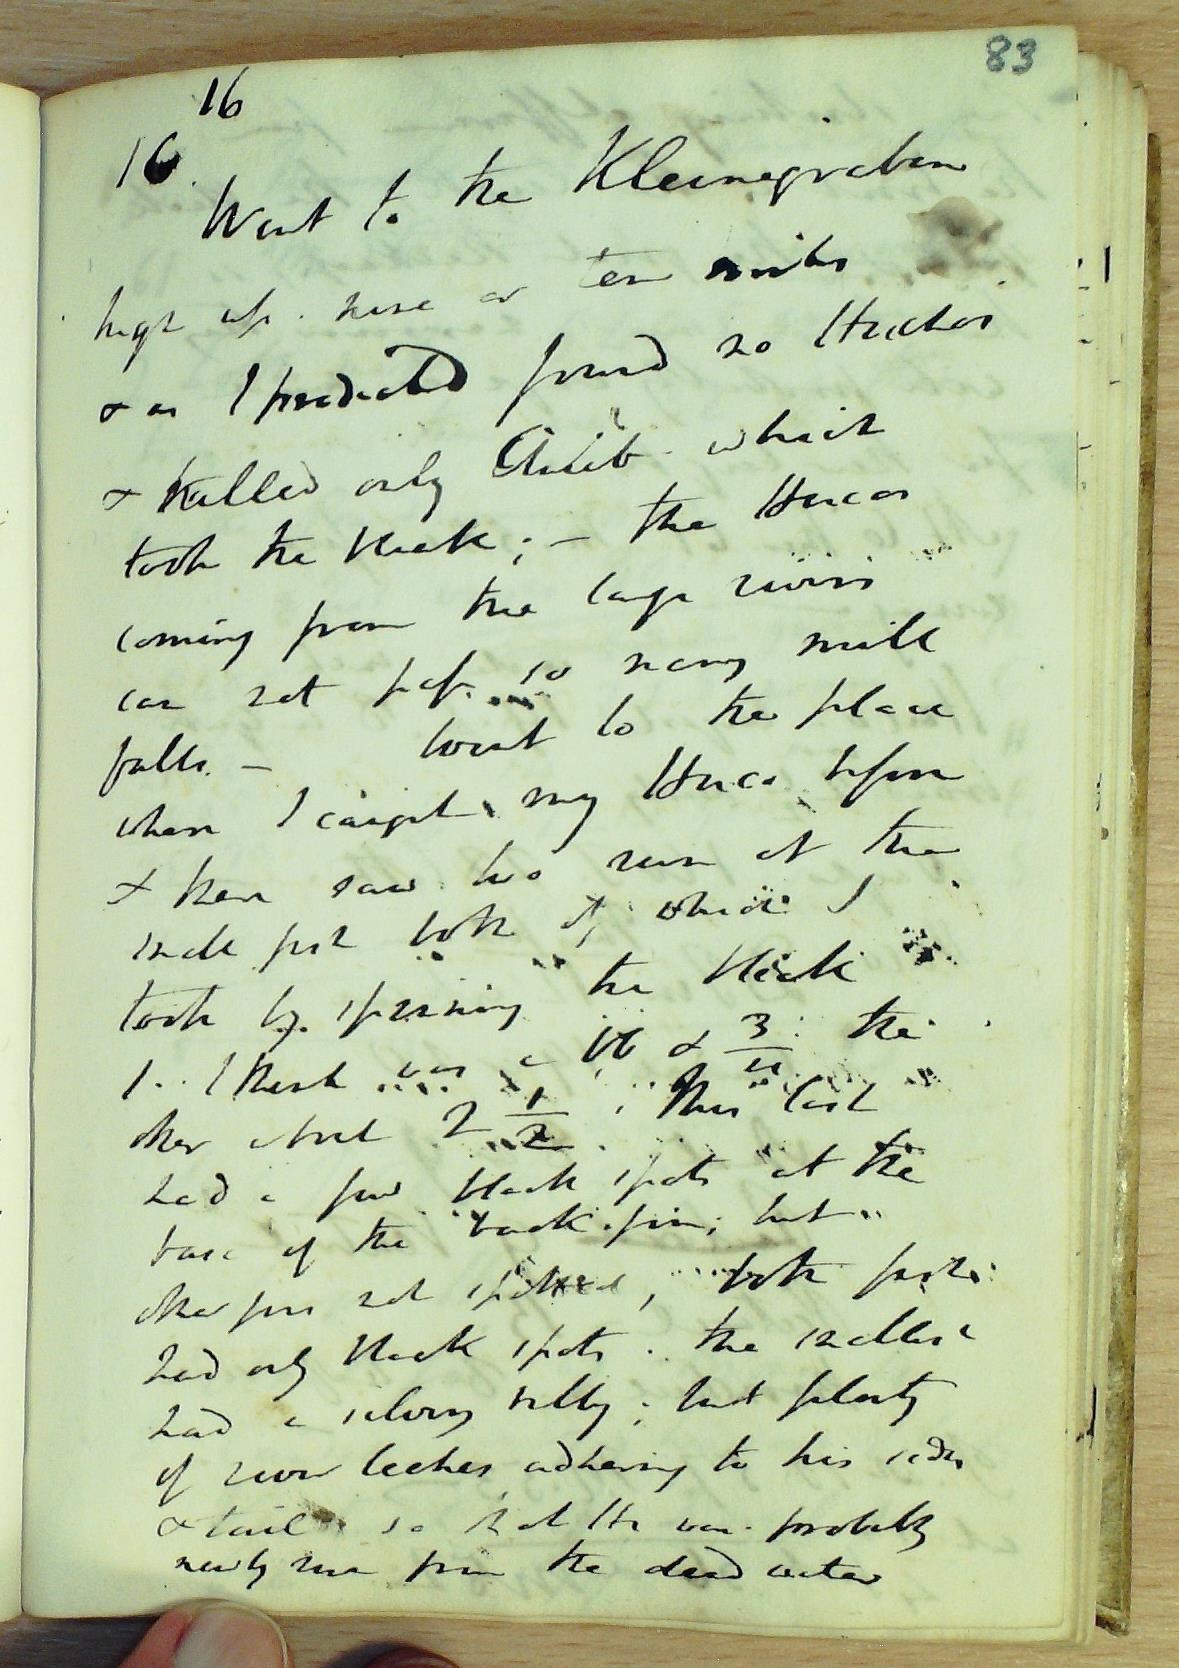 83
16
16.
Went to the Kleinegraben
high up. nine or ten miles
& as I predicted found no Huchos
& killed only Chub which
took the bleak; - the Hucos
coming from the large rivers
can not pass so many mill
falls. - Went to the place
where I caught my Huco before
& there saw two run at the
small fish both of which I
took by spinning the bleak
1. I think was a 16 & 3/4 the
other about 2 1/2. This last
had a few black spots at the
base of the back fin; but
other fins not spotted, both fish
had only black spots. the smallest
had a silvery belly; but plenty
of river leeches adhering to his sides
& tail so that He was probably
newly run from the dead water